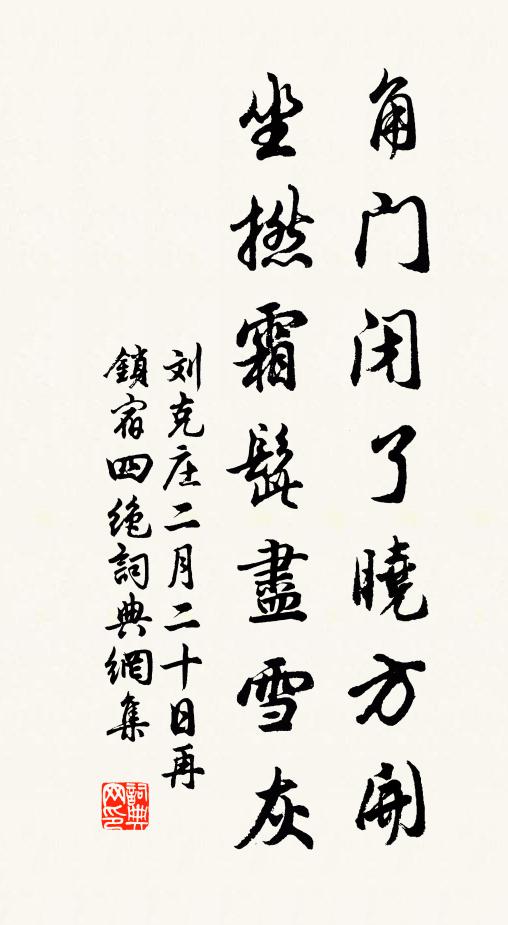 角门闭了曉方開
坐撚霜髭盡雪灰
刘克庄二月二十日再
鎖宿四绝詞典網集
詞典网印